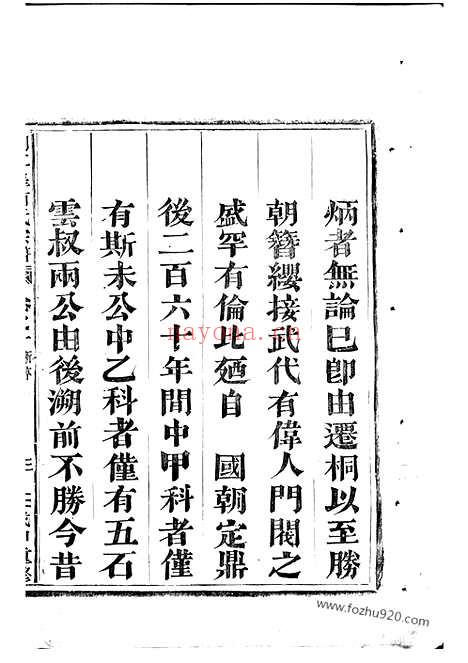 炳者無論已卽由遷桐以至勝
朝簪纓接武代有偉人門閥之
盛罕有倫比廼自　國朝定鼎
後二百六十年間中甲科者僅
有斯未公中乙科者僅有五石
雲叔兩公由後溯前不勝今昔
nayona.cn
www.fozhu920.com